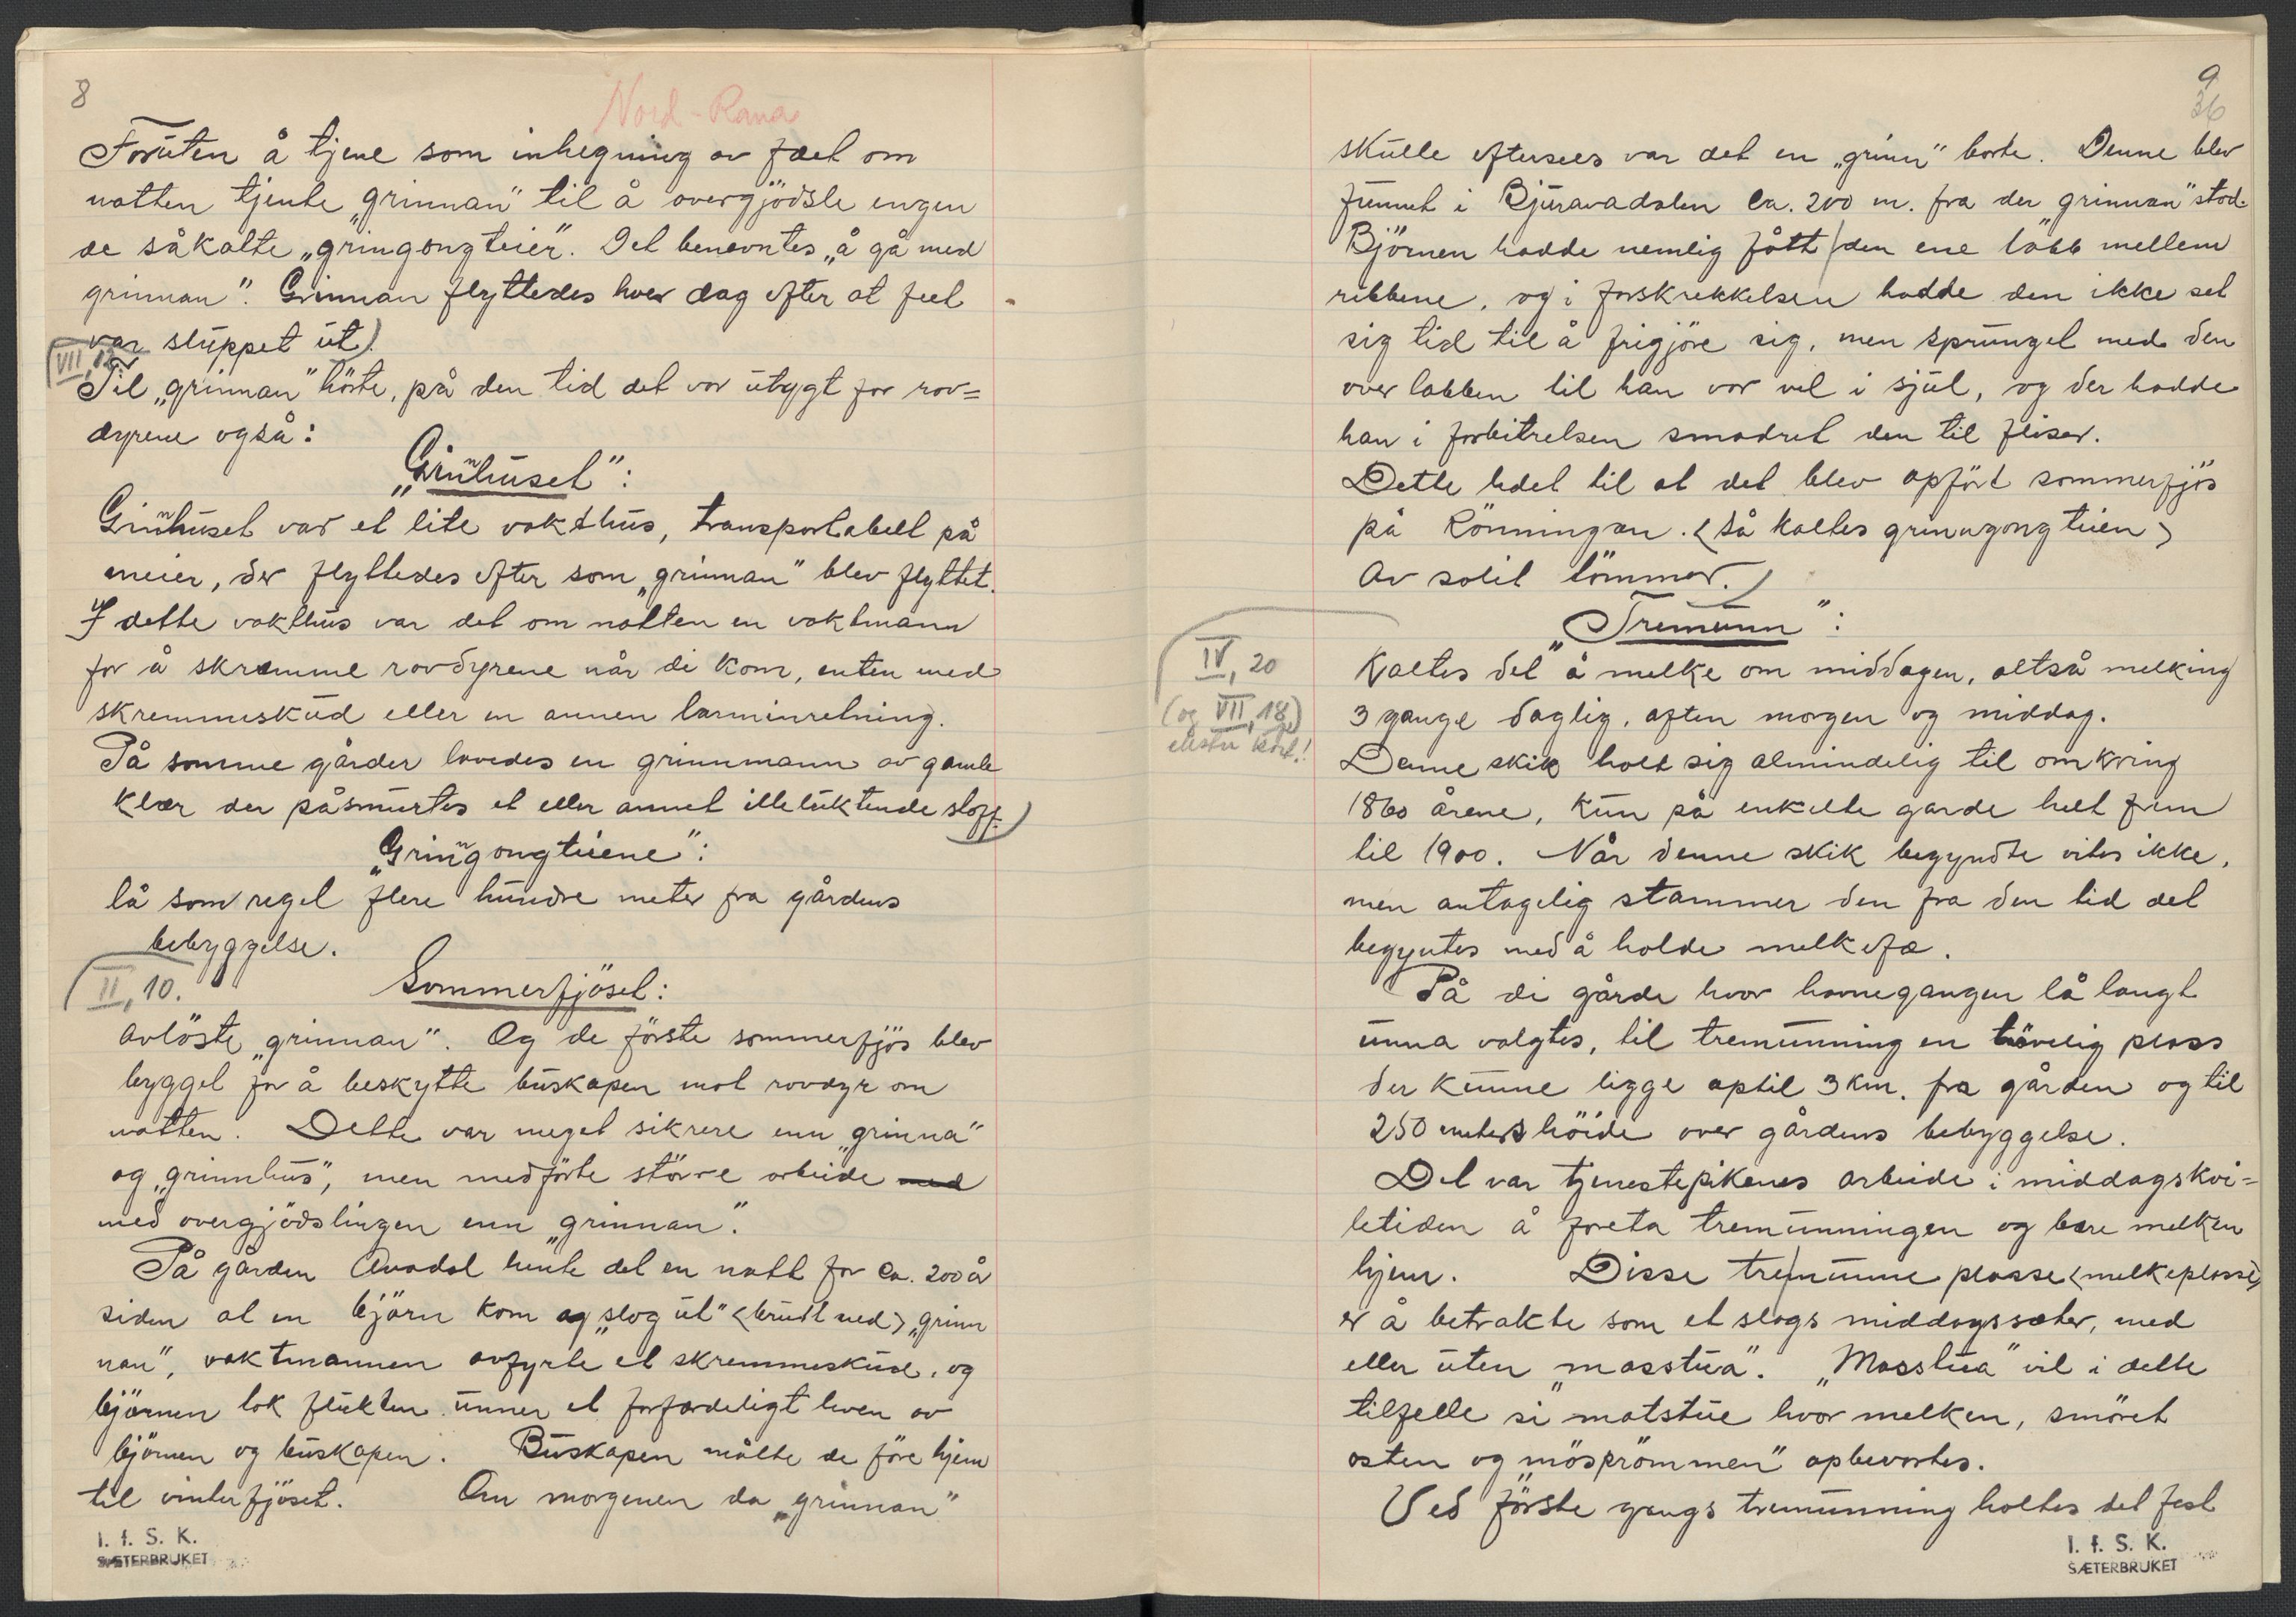 8
Nord-Rana
Foruten å tjene som inhegning av fæet om
natten tjente „grinnan" til å overgjödsle engen
de såkalte „gringongteier". Det benevntes „å gå med
grinnan". Grinnan flyttedes hver dag efter at feet
var sluppet ut)
VII, 12
Til „grinnan" hörte, på den tid det var utrygt for rov=
dyrene også:
„Grinnhuset":
Grinnhuset var et lite vakthus, transportabelt på
meier, der flyttedes efter som „grinnan" blev flyttet.
I dette vakthus var det om natten en vaktmann
for å skræmme rovdyrene når di kom, enten med
skremmeskud eller en annen larminretning.
På somme gårder lavedes en grinnmann av gamle
klær der påsmurtes et eller annet illeluktende stoff.)
„Grinngongteiene":
lå som regel flere hundre meter fra gårdens
bebyggelse.
II, 10.
Sommerfjöset:
avlöste „grinnan". Og de förste sommerfjös blev
bygget for å beskytte buskapen mot rovdyr om
natten. Dette var meget sikrere enn „grinna"
og „grinnhus", men medförte större arbeide med
med overgjödslingen enn „grinnan".
På gården Avadal hente det en natt for ca. 200 år
siden at en björn kom og „slog ut" <brudt ned> „grinn
nan", vaktmannen avfyrte et skremmeskud, og
björnen tok flukten unner et forfærdeligt leven av
björnen og buskapen. Buskapen måtte de före hjem
til vinterfjöset. Om morgenen da „grinnan"
I. f. S. K.
SÆTERBRUKET
9
36
skulle eftersees var det en „grinn" borte. Denne blev
funnet i Bjuravadalen ca. 200 m. fra der „grinnan" stod.
Björnen hadde nemlig fått den ene labb mellem
ribbene, og i forskrekkelsen hadde den ikke set
sig tid til å frigjöre sig, men sprunget med den
over labben til han var vel i sjul, og der hadde
han i forbitrelsen smadret den til fliser.
Dette ledet til at det blev opfört sommerfjös
på Rönningan. <så kaltes grinngongteien>
av solit tömmer.)
„Tremunn":
IV, 20
(og VII, 18)
ekstra kort!
Kaltes det å melke om middagen, altså melking
3 gange daglig, aften morgen og middag.
Denne skik holt sig almindelig til omkring
1860 årene, kun på enkelte garde helt frem
til 1900. Når denne skik begyndte vites ikke,
men antagelig stammer den fra den tid det
begyntes med å holde melkefæ.
På di gårde hvor havnegangen lå langt
unna valgtes, til tremunning en hövelig plass
der kunne ligge optil 3 km. fra gården og til
250 meters höide over gårdens bebyggelse.
Det var tjenestepikenes arbeide i middagskvi=
letiden å foreta tremunningen og bære melken
hjem. Disse tremunne plasse <melkeplasse>
er å betrakte som et slags middagssæter, med
eller uten „masstua". „Masstua" vil i dette
tilfelle si matstue hvor melken, smöret
osten og „mösprömmen" opbevartes.
Ved förste gangs tremunning holtes det fest
I. f. S. K.
SÆTERBRUKET